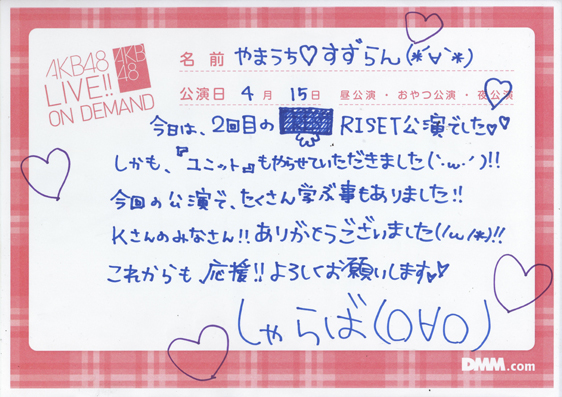 AKB48
LIVE!!
ON DEMAND
AKB
48
名前 やまうち♡すずらん(*´∀`*)
公演日 4月 15日 昼公演・おやつ公演・夜公演
今日は、2回目の RISET公演でした♡♡
しかも、『ユニット』もやらせていただきました(´・ω・`)!!
今回の公演で、たくさん学ぶ事もありました!!
Kさんのみなさん!! ありがとうございました(/ω/*)!!
これからも、応援!! よろしくお願いします♡♡
しゃらば(O∀O)
DMM.com